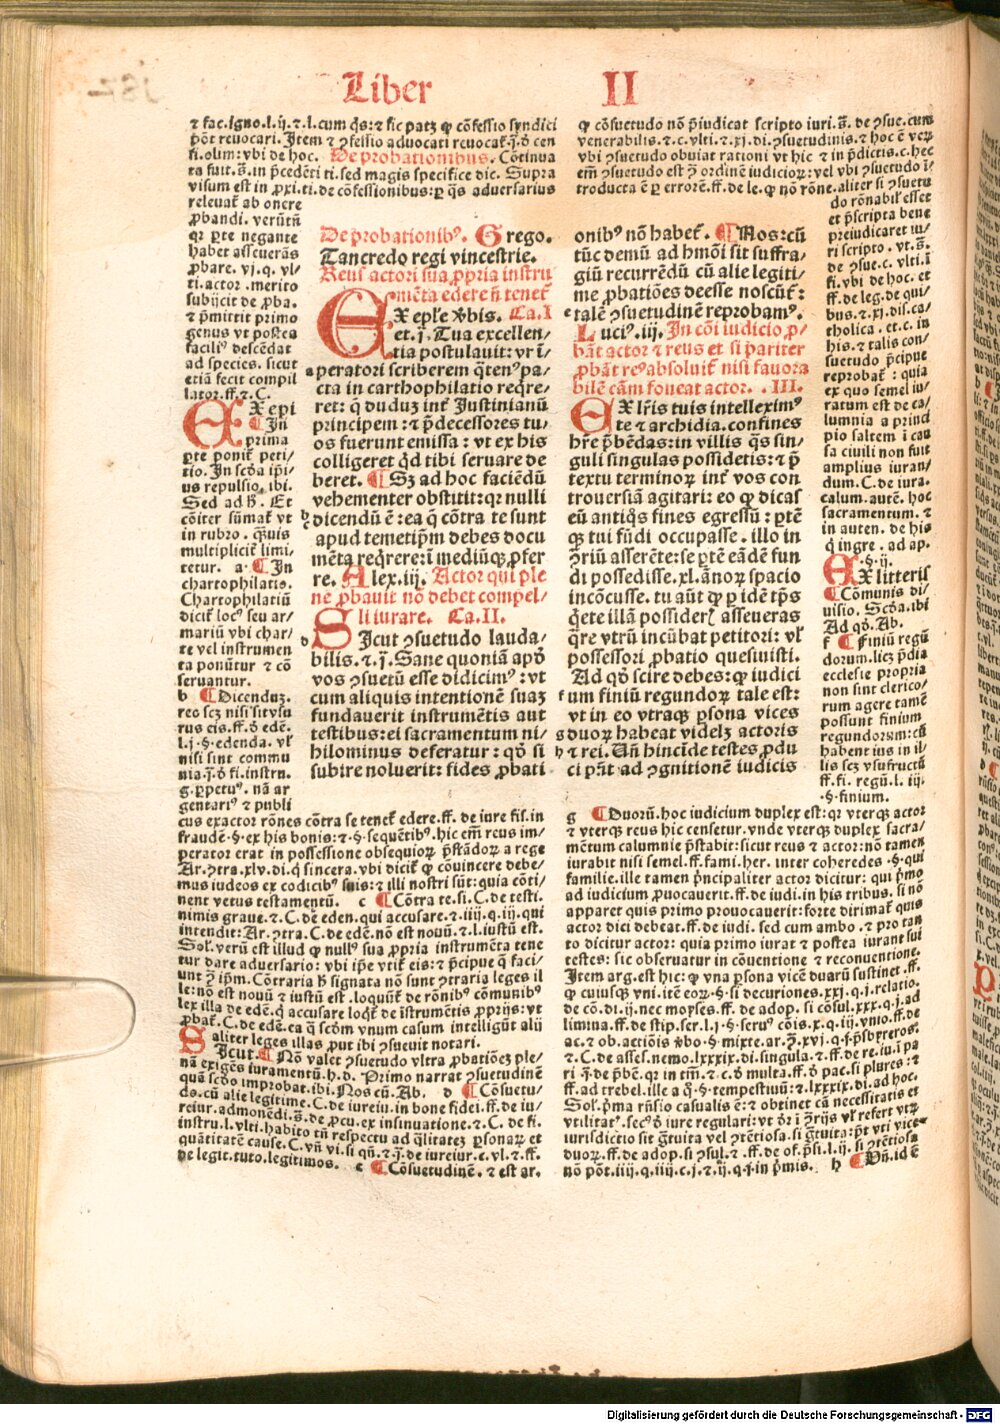 Liber II
⁊ fac.igno.l.ij.⁊.l.cum q̄s:⁊ sic patꝫ ꝙ cōfessio syndici
pōt reuocari. Item ⁊ ꝯfessio aduocati reuocat̄.j.ō cen
si.olim:vbi de hoc. De probationibus. Cōtinua
ta fuit.s̄.in p̄cedēti ti.sed magis specifice dic. Supra
visum est in ꝓxi.ti.de cōfessionibus:ꝑ q̄s aduersarius
releuat̄ ab onere
ꝓbandi. verūtn̄
qꝛ ꝑte negante
habet asseuerās
ꝓbare. vj.q. vl/
ti.actor .merito
subijcit de ꝓba.
⁊ p̄mittit primo
genus vt postea
facilꝰ descēdat
ad species. sicut
etiā fecit compil
lator.ff.⁊.C.
EX epi
¶ In
prima
ꝑte ponit̄ peti/
tio. In scd̄a ip̄i/
us repulsio. ibi.
Sed ad h̄. Et
cōiter sūmat̄ vt
in rubro. q̄uis
multiplicit̄ limi/
tetur. a. ¶ In
chartophilatio.
Chartophilatiū
dicit̄ locꝰ seu ar/
mariū vbi char/
te vel instrumen
ta ponūtur ⁊ cō
seruantur.
b ¶ Dicenduꝫ.
reo scꝫ nisi sit vsu
rus eis.ff.ō edē.
l.j.§.edenda. vl̄
nisi sint commu
nia.j̄.ō fi.instru.
g.ꝑpetuꝰ. nā ar
gentarꝰ ⁊ publi
cus exactor rōnes cōtra se tenet̄ edere.ff. de iure fis.in
fraudē.§.ex his bonis:⁊.§.sequētibꝰ.hic em̄ reus im/
perator erat in possessione obsequioꝝ p̄stādoꝝ a rege
Ar.ꝯtra.xlv.di.q̄ sincera.vbi dicit̄ ꝙ cōuincere debe/
mus iudeos ex codicibꝰ suis:⁊ illi nostri sūt:quia cōti/
nent vetus testamentū. c ¶ Cōtra te.si.C.de testi.
nimis graue.⁊.C.de edē.qui accusare.⁊.iiij.q.iij.qui
intendit: Ar.ꝯtra.C.de edē.nō est nouū.⁊.l.iustū est.
Sol. verū est illud ꝙ nullꝰ sua ꝓpria instrumēta tene
tur dare aduersario: vbi ip̄e vtit̄ eis:⁊ p̄cipue q̄ faci/
unt ꝫ ip̄m. Cōtraria h̄ signata nō sunt ꝯtraria leges il
le:nō est nouū ⁊ iustū est.loquūt̄ de rōnibꝰ cōmunibꝰ
lex illa de edē.q̄ accusare loqt̄ de īstrumētis ꝓprijs:vt
ꝓbat̄.C.de edē.ea q̄ scōm vnum casum intelligūt alij
aliter leges illas ,put ibi ꝯsueuit notari.
SIcut.¶ Nō valet ꝯsuetudo vltra ꝓbatiōeꝫ ple/
nā exigēs iuramentū.h.d. Primo narrat ꝯsuetudinē
quā scd̄o improbat.ibi.Nos cū.Ab. d ¶ Cōsuetu/
do.cū alie legitime.C.de iureiu.in bone fidei.ff.de iu/
reiur.admonēdi.s̄.de ꝓcu.ex insinuatione.⁊.C. de fi.
instru.l.vlti.habito tn̄ respectu ad q̄litateꝫ ꝑsonaꝝ et
quātitatē cause.C.vn̄ vi.si qn̄.⁊.j̄.de iureiur.c.vl.⁊.ff.
de legit.tuto.legitimos. e ¶ Cōsuetudinē. ⁊ est ar.
De probationibꝰ. Grego.
Tancredo regi vincestrie.
Reus actori sua ꝓpria instru
mēta edere n̄ tenet̄
EX epl̄e ꝟbis. Ca.I
et.j̄. Tua excellen/
tia postulauit: vt ī/
a peratori scriberem q̄tenꝰpa/
cta in carthophilatio reqre/
ret: q̄ duduꝫ int̄ Justinianū
principem:⁊ p̄decessores tu/
os fuerunt emissa: vt ex his
colligeret qd̄ tibi seruare de
beret. ¶ Sꝫ ad hoc faciēdū
vehementer obstitit:qꝛ nulli
b dicendū ē: ea q̄ cōtra te sunt
c
apud temetip̄m debes docu
mēta reqrere:ī mediūqꝫ ꝓfer
re. Alex.iij. Actor qui ple
ne ꝓbauit nō debet compel/
li iurare. Ca.II.
SIcut ꝯsuetudo lauda/
bilis.⁊.j̄. Sane quoniā apd̄
vos ꝯsuetū esse didicimꝰ: vt
cum aliquis intentionē suaꝫ
fundauerit instrumētis aut
testibus: ei sacramentum ni/
hilominus deferatur: qd̄ si
subire noluerit: fides ꝓbati
ꝙ cōsuetudo nō p̄iudicat scripto iuri.s̄. de ꝯsue.cum
venerabilis.⁊.c.vlti.⁊.xj.di.ꝯsuetudinis.⁊ hoc ē veꝝ
vbi ꝯsuetudo obuiat rationi vt hic ⁊ in p̄dictis.c.hec
em̄ ꝯsuetudo est ꝫ ordinē iudicioꝝ: vel vbi ꝯsuetudo ī/
troducta ē ꝑ errorē.ff.de le.ꝙ nō rōne.aliter si ꝯsuetu
do rōnabil̓ esset
et p̄scripta bene
preiudicaret iu/
ri scripto .vt.s̄.
de ꝯsue.c.vlti.⁊
fi.vbi de hoc.et
ff.de leg.de qui/
bus.⁊.xj.dis.ca
tholica.et.c.in
his.⁊ talis con/
suetudo p̄cipue
reprobat̄ : quia
ex quo semel iu/
ratum est de ca/
lumnia a princi
pio saltem ī cau
sa ciuili non fuit
amplius iuran/
dum.C.de iura.
calum.autē. hoc
sacramentum.⁊
in auten. de his
q̄ ingre. ad ap.
§.ij.
EX litteris
¶ Cōmunis di/
uisio. Scd̄a.ibi
Ad qd̄. Ab.
f ¶ Finiū regū
dorum.licꝫ p̄dia
ecclesie propria
non sint clerico/
rum agere tamē
possunt finium
regundorum:cū
habent ius in il/
lis scꝫ vsufructū
ff.fi. regū.l. iij.
§.finium.
onibꝰ nō habet̄. ¶ Nos:cū
tūc demū ad hmōi sit suffra/
giū recurrēdū cū alie legiti/
me ꝓbatiōes deesse noscūt̄:
e talē ꝯsuetudinē reprobamꝰ.
Luciꝰ.iij. In cōi iudicio ꝓ/
bāt actor ⁊ reus et si pariter
ꝓbāt reꝰabsoluit̄ nisi fauora
bilē cām foueat actor. .III.
EX lr̄is tuis intelleximꝰ
te ⁊ archidia.confines
hr̄e p̄bēdas:in villis q̄s sin/
guli singulas possidetis:⁊ p̄
textu terminoꝝ int̄ vos con
trouersiā agitari: eo ꝙ dicas
eū antiqs fines egressū : ꝑtē
qꝫ tui fūdi occupasse. illo in
ꝯriū asserēte:se ꝑtē eādē fun
di possedisse.xl.ānoꝝ spacio
incōcusse. tu aūt ꝙ ꝑ idē tp̄s
q̄ete illā possideris asseueras
q̄re vtrū incūbat petitori: vl̄
possessori ꝓbatio quesiuisti.
Ad qd̄ scire debes:ꝙ iudici
f um finiū regundoꝝ tale est:
vt in eo vtraqꝫ ꝑsona vices
g duoꝝ habeat videlꝫ actoris
h ⁊ rei. Vn̄ hincīde testes ꝓdu
ci pn̄t ad ꝯgnitionē iudicis
g ¶ Duorū.hoc iudicium duplex est: qꝛ vterqꝫ actor
⁊ vterqꝫ reus hic censetur.vnde vterqꝫ duplex sacra/
mētum calumnie p̄stabit: sicut reus ⁊ actor:nō tamen
iurabit nisi semel.ff.fami.her. inter coheredes.§.qui
familie.ille tamen p̄ncipaliter actor dicitur: qui p̄mo
ad iudicium ꝓuocauerit.ff.de iudi.in his tribus. si nō
apparet quis primo prouocauerit: forte dirimat̄ quis
actor dici debeat.ff.de iudi. sed cum ambo.⁊ pro tan
to dicitur actor: quia primo iurat ⁊ postea iurant sui
testes: sic obseruatur in cōuentione ⁊ reconuentione.
Item arg.est hic: ꝙ vna ꝑsona vicē duarū sustinet.ff.
ꝙ cuiusqꝫ vni.itē eoꝝ.§.si decuriones.xxj.q.j.relatio.
de cō.di.ij.nec moyses.ff. de adop. si cōsul.xxx.q.j.ad
limina.ff.de stip.ser.l.j.§.seruꝰ cōis.x.q.iij.vnio.ff.de
ac.⁊ ob.actiōis ꝟbo.§.mixte.ar.ꝫ.xvj.q.j.p̄sbyteros:
⁊.C.de asses.nemo.lxxxix.di.singula.⁊.ff.de re.iu.ī pa
ri.j̄.de p̄ben.qꝛ in tm̄.⁊.c.ō multa.ff.ō pac.si plures:⁊
ff.ad trebel.ille a q̄.§.tempestiuū:⁊.lxxxix.di.ad hoc.
Sol.p̄ma rn̄sio casualis ē:⁊ obtinet cā necessitatis et
vtilitatꝰ.secꝰ ō iure regulari:vt ōr ī ꝯrijs vl̄ refert vtꝝ
iurisdictio sit ḡtuita vel ꝯtētiosa.si ḡtuita:pt̄ vti vice
duoꝝ.ff.de adop.si ꝯsul.⁊ .ff.de of.p̄si.l.ij.si ꝯtētiosa
nō pōt.iiij.q.iiij.c.j.⁊.ij.q.j.in p̄mis. h ¶ Vn̄.id ē
Digitalisierung gefördert durch die Deutsche Forschungsgemeinschaft - DFG